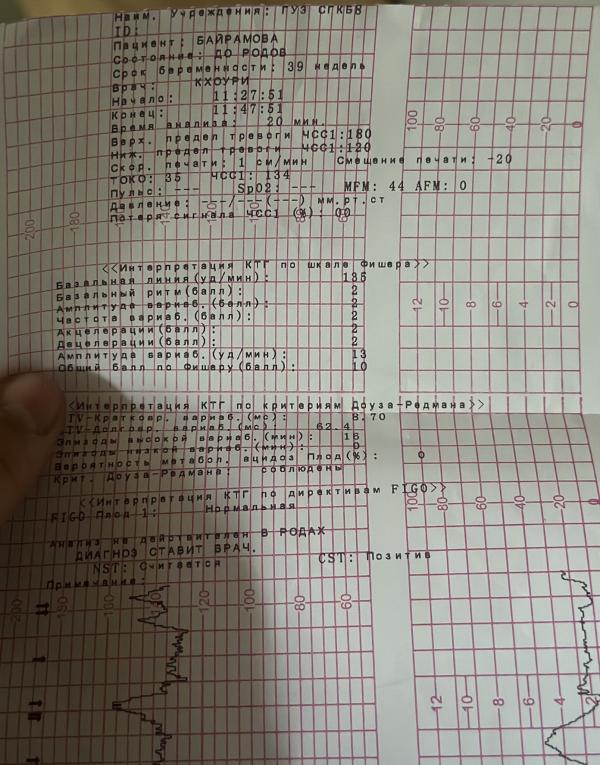 Наим. Учреждения: ГУЗ СПКБ8
ID:
Пациент: БАЙРАМОВА
Состояние: ДО РОДОВ
Срок беременности: 39 недель
Врач: КХОУРИ
Начало: 11:27:51
Конец: 11:47:51
Время анализа: 20 мин.
Верх. предел тревоги ЧСС1:180
Ниж. предел тревоги ЧСС1:120
Скор. печати: 1 см/мин Смещение печати: -20
ТОКО: 35 ЧСС1: 134
Пульс: --- SpO2: --- MFM: 44 AFM: 0
Давление: ---/---(---) мм.рт.ст
Потеря сигнала ЧСС1 (%): 00
200 180 140 80 60
100 80 60 40 20 0
<<Интерпретация КТГ по шкале Фишера>>
Базальная линия(уд/мин): 135
Базальный ритм(балл): 2
Амплитуда вариаб.(балл): 2
Частота вариаб.(балл): 2
Акцелерации(балл): 2
Децелерации(балл): 2
Амплитуда вариаб.(уд/мин): 13
Общий балл по Фишеру(балл): 10
12 8 6 4 2 0
<<Интерпретация КТГ по критериям Доуза-Редмана>>
STV-Кратковр. вариаб.(мс): 8.70
LTV-Долговр. вариаб.(мс): 62.4
Эпизоды высокой вариаб.(мин): 16
Эпизоды низкой вариаб.(мин): 0
Вероятность метабол. ацидоз Плод(%): 0
Крит. Доуза-Редмана: соблюдены
<<Интерпретация КТГ по директивам FIGO>>
FIGO Плод 1: Нормальная
100 80 60 40 20 0
Анализ не действителен В РОДАХ
ДИАГНОЗ СТАВИТ ВРАЧ.
NST: Считается CST: Позитив
Примечание:
200 180 120 100 80 60
12 10 8 6 4 2